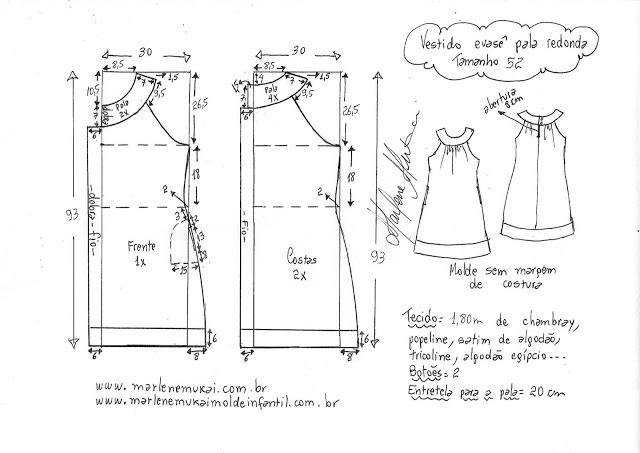 Vestido evasê pala redonda
Tamanho 52
30
8,5
1,5
7
9,5
10,5
Pala
2x
7
dobra
6
26,5
18
2
93
- dobra - fio -
3
2
13
3
15
Frente
1x
6
6
8
30
8,5
4
7
1,5
9,5
Pala
4x
7
6
26,5
18
2
93
- Fio -
Costas
2x
6
6
8
abertura
8cm
Marlene Mukai
Molde sem margem
de costura
Tecido= 1,80m de chambray,
popeline, satim de algodão,
tricoline, algodão egípcio...
Botões= 2
Entretela para a pala= 20 cm
www.marlenemukai.com.br
www.marlenemukaimoldeinfantil.com.br